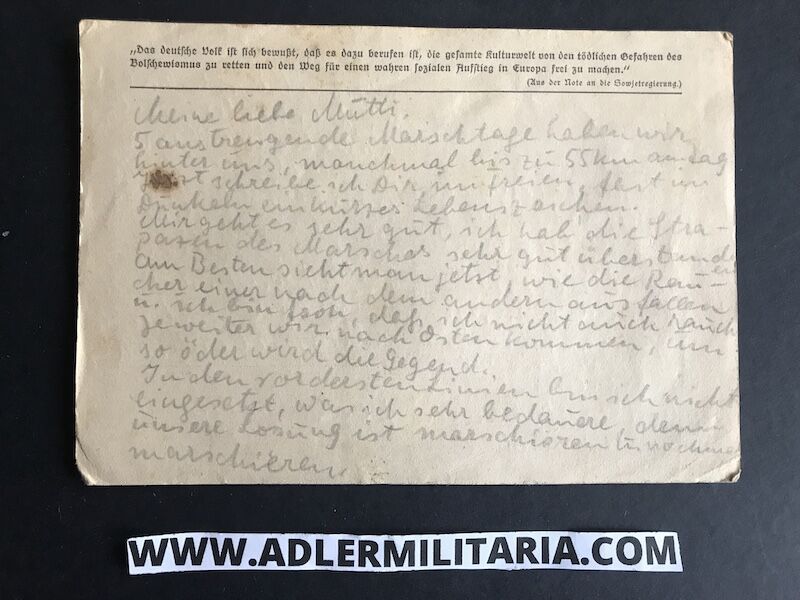 „Das deutsche Volk ist sich bewußt, daß es dazu berufen ist, die gesamte Kulturwelt von den tödlichen Gefahren des
Bolschewismus zu retten und den Weg für einen wahren sozialen Aufstieg in Europa frei zu machen.“
(Aus der Note an die Sowjetregierung.)
Meine liebe Mutti.
5 anstrengende Marschtage haben wir
hinter uns, manchmal bis zu 55 km am Tag
schreibe ich Dir, im freien, fast im
Dunkeln ein kurzes Lebenszeichen.
Mir geht es sehr gut, ich hab die Stra-
pazen des Marsches sehr gut überstanden
Am Besten sieht man jetzt, wie die Rau-
cher einer nach dem andern ausfallen
u. ich bin froh, daß ich nicht auch rauch
Je weiter wir nach Osten kommen, um
so öder wird die Gegend.
In den vordersten Linien bin ich nicht
eingesetzt, was ich sehr bedauere, denn
unsere Losung ist marschieren u. nochmal
marschieren.
WWW.ADLERMILITARIA.COM